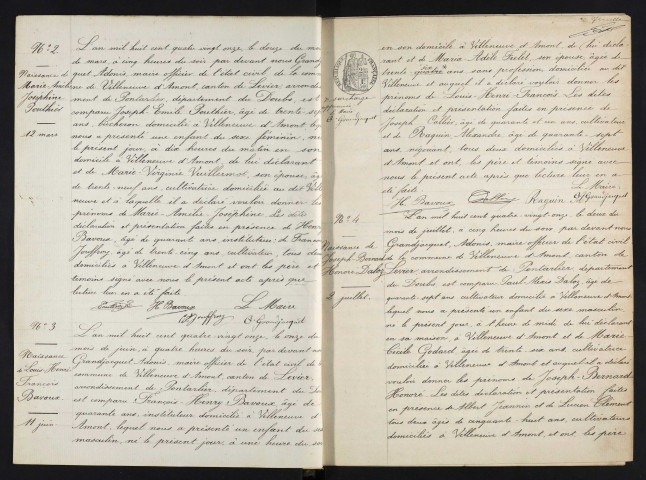 N° 2
Naissance de
Marie Amélie
Joséphine
Pouthier
12 mars
L'an mil huit cent quatre vingt onze, le douze du mois
de mars, à cinq heures du soir, par devant nous Grandj
quet Adonis, maire officier de l'état civil de la com
ne de Villeneuve d'Amont, canton de Levier, arrondisse
ment de Pontarlier, département du Doubs, est
comparu Joseph Emile Pouthier, âgé de trente sept
ans, bûcheron domicilié à Villeneuve d'Amont lequel
nous a présenté un enfant du sexe féminin, né
le présent jour, à dix heures du matin en son
domicile à Villeneuve d'Amont, de lui déclarant
et de Marie Virginie Vuillermot, son épouse, âgée
de trente neuf ans, cultivatrice domiciliée au dit Ville
neuve et à laquelle il a déclaré vouloir donner les
prénoms de Marie Amélie Joséphine. Les dites
déclaration et présentation faites en présence de Henry
Bavoux, âgé de quarante ans, instituteur, de François
Jouffroy, âgé de trente cinq ans, cultivateur, tous deux
domiciliés à Villeneuve d'Amont et ont les père et
témoins signé avec nous le présent acte après que
lecture leur en a été faite
H. Bavoux Le Maire
Jouffroy A. Grandjacquet
N° 3
Naissance
de Louis Henri
François
Bavoux
11 juin
L'an mil huit cent quatre vingt onze, le onze du
mois de juin, à quatre heures du soir, par devant nous
Grandjacquet Adonis, maire officier de l'état civil de la
commune de Villeneuve d'Amont, canton de Levier,
arrondissement de Pontarlier, département du Doubs
est comparu François Henry Bavoux, âgé de
quarante ans, instituteur domicilié à Villeneuve d'
Amont, lequel nous a présenté un enfant du sexe
masculin, né le présent jour, à une heure du soir
en son domicile à Villeneuve d'Amont, de lui décla
rant et de Maria Adèle Frelet, son épouse, âgée de
trente quatre six ans, sans profession, domiciliée au dit
Villeneuve et auquel il a déclaré vouloir donner les
prénoms de Louis Henri François. Les dites
déclaration et présentation faites en présence de
Joseph Collée, âgé de quarante et un ans, cultivateur
et de Raguin Alexandre âgé de quarante sept
ans, négociant, tous deux domiciliés à Villeneuve
d'Amont et ont, les père et témoins signé avec
nous le présent acte après que lecture leur en a
été faite Le Maire
H. Bavoux Raguin A. Grandjacquet
N° 4
Naissance de
Joseph Bernard
Honoré Daloz
2 juillet
L'an mil huit cent quatre vingt onze, le deux du
mois de juillet, à cinq heures du soir par devant nous
Grandjacquet, Adonis, maire officier de l'état civil
de la commune de Villeneuve d'Amont, canton de
Levier arrondissement de Pontarlier département
du Doubs est comparu Paul Alexis Daloz, âgé de
quarante sept ans, cultivateur domicilié à Villeneuve d'Amont
lequel nous a présenté un enfant du sexe masculin
né le présent jour, à heure de midi de lui déclarant
en sa maison, à Villeneuve d'Amont et de Marie
Cécile Godard âgée de trente six ans cultivatrice
domiciliée à Villeneuve d'Amont et auquel il a déclaré
vouloir donner les prénoms de Joseph Bernard
Honoré. Les dites déclaration et présentation faites
en présence d'Albert Jeannin et de Lucien Clément
tous deux âgés de cinquante huit ans cultivateurs
domiciliés à Villeneuve d'Amont, et ont les père